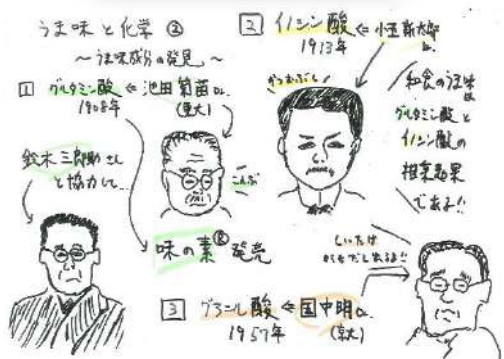 うま味と化学②
～うま味成分の発見～
1 グルタミン酸 ← 池田菊苗Dr.
1908年
(東大)
鈴木三郎助さん
と協力して…
こんぶ
味の素® 発売
2 イノシン酸 ← 小玉新太郎
Dr.
1913年
かつおぶし
和食のうま味は
グルタミン酸と
イノシン酸の
相乗効果
である!!
しいたけ
からもだしとれるよ!!
3 グアニル酸 ← 国中明Dr.
1957年
(京大)